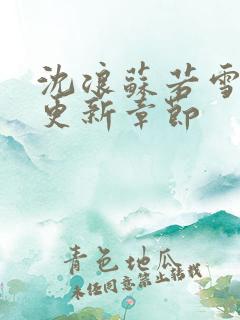 沈浪蘇若雪
更新章節
青色地瓜
未经同意禁止转载